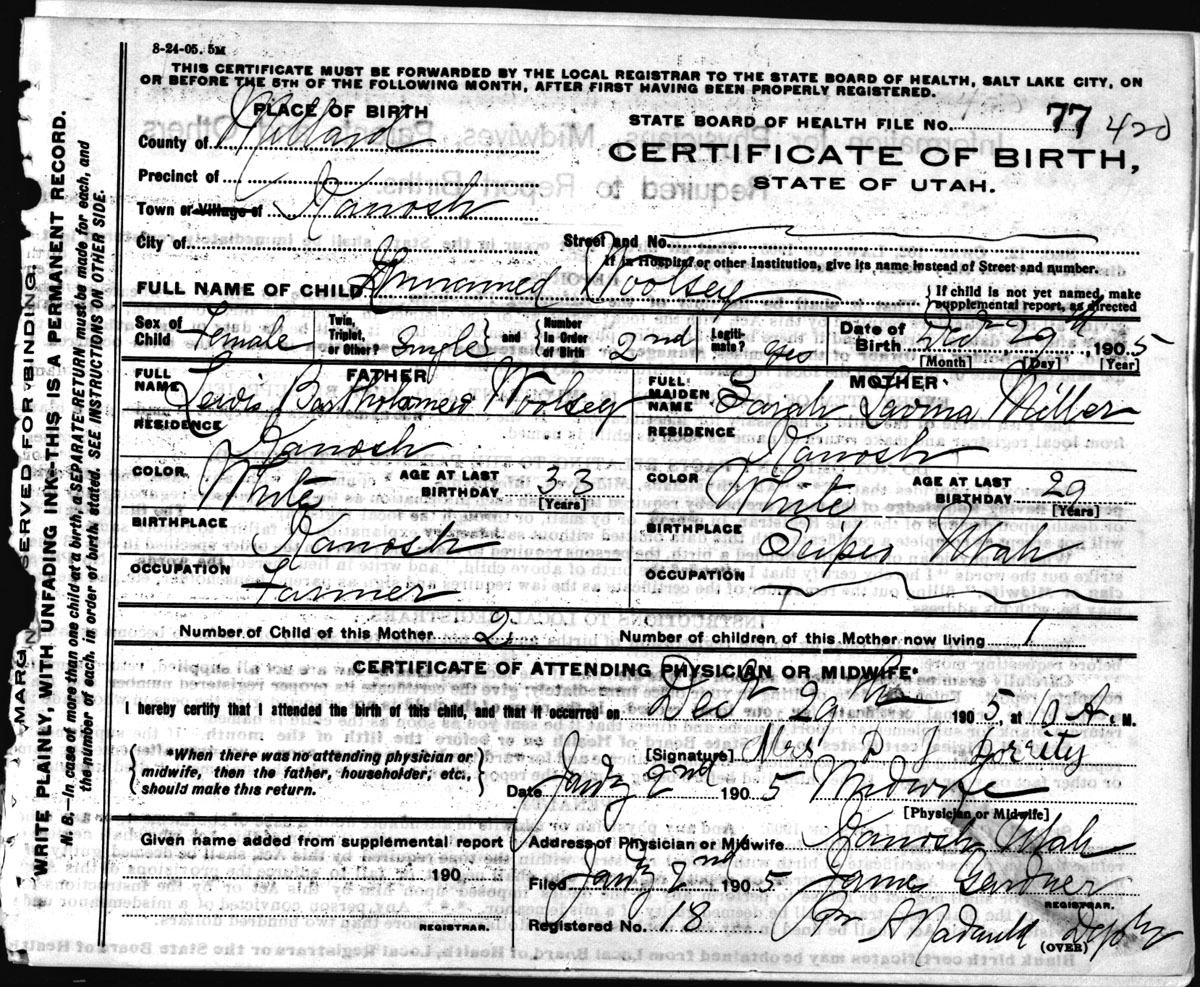 8-24-05. 5M
THIS CERTIFICATE MUST BE FORWARDED BY THE LOCAL REGISTRAR TO THE STATE BOARD OF HEALTH, SALT LAKE CITY, ON
OR BEFORE THE 5TH OF THE FOLLOWING MONTH, AFTER FIRST HAVING BEEN PROPERLY REGISTERED.
PLACE OF BIRTH
STATE BOARD OF HEALTH FILE No. 77 420
County of Millard
CERTIFICATE OF BIRTH,
STATE OF UTAH.
Precinct of
Town or Village of Kanosh
City of
Street and No.
If in Hospital or other Institution, give its name instead of Street and number.
FULL NAME OF CHILD Unnamed Woolsey
{If child is not yet named, make
supplemental report, as directed
Sex of Child Female
Twin, Triplet, or Other? Single } and { Number In Order of Birth 2nd
Legitimate? yes
Date of Birth Dec 29th, 1905
[Month] [Day] [Year]
FATHER
FULL NAME Lewis Bartholamew Woolsey
RESIDENCE Kanosh
COLOR White AGE AT LAST BIRTHDAY 33 [Years]
BIRTHPLACE Kanosh
OCCUPATION Farmer
MOTHER
FULL MAIDEN NAME Sarah Lavina Miller
RESIDENCE Kanosh
COLOR White AGE AT LAST BIRTHDAY 29 [Years]
BIRTHPLACE Utah
OCCUPATION
Number of Child of this Mother 2 Number of children of this Mother now living 1
CERTIFICATE OF ATTENDING PHYSICIAN OR MIDWIFE*
I hereby certify that I attended the birth of this child, and that it occurred on Dec 29th 1905, at 10 A. M.
{*When there was no attending physician or
midwife, then the father, householder, etc.,
should make this return.}
[Signature] Mrs D J Dorrity
Date Jany 2nd 1905 Midwife
[Physician or Midwife]
Given name added from supplemental report
190
REGISTRAR.
Address of Physician or Midwife Kanosh Utah
Filed Jany 2nd 1905 James Gardner
REGISTRAR.
Registered No. 18 Deputy
(OVER)
MARGIN RESERVED FOR BINDING.
WRITE PLAINLY, WITH UNFADING INK—THIS IS A PERMANENT RECORD.
N. B.—In case of more than one child at a birth, a SEPARATE RETURN must be made for each, and
the number of each, in order of birth, stated. SEE INSTRUCTIONS ON OTHER SIDE.